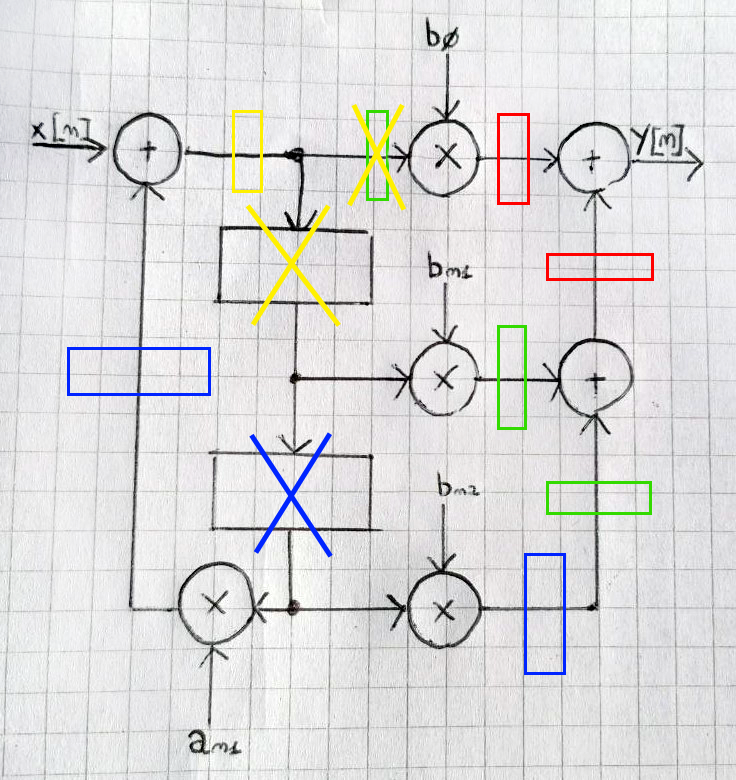 bø
x[n]
+
×
+
Y[n]
bm1
×
+
bm2
×
×
am1